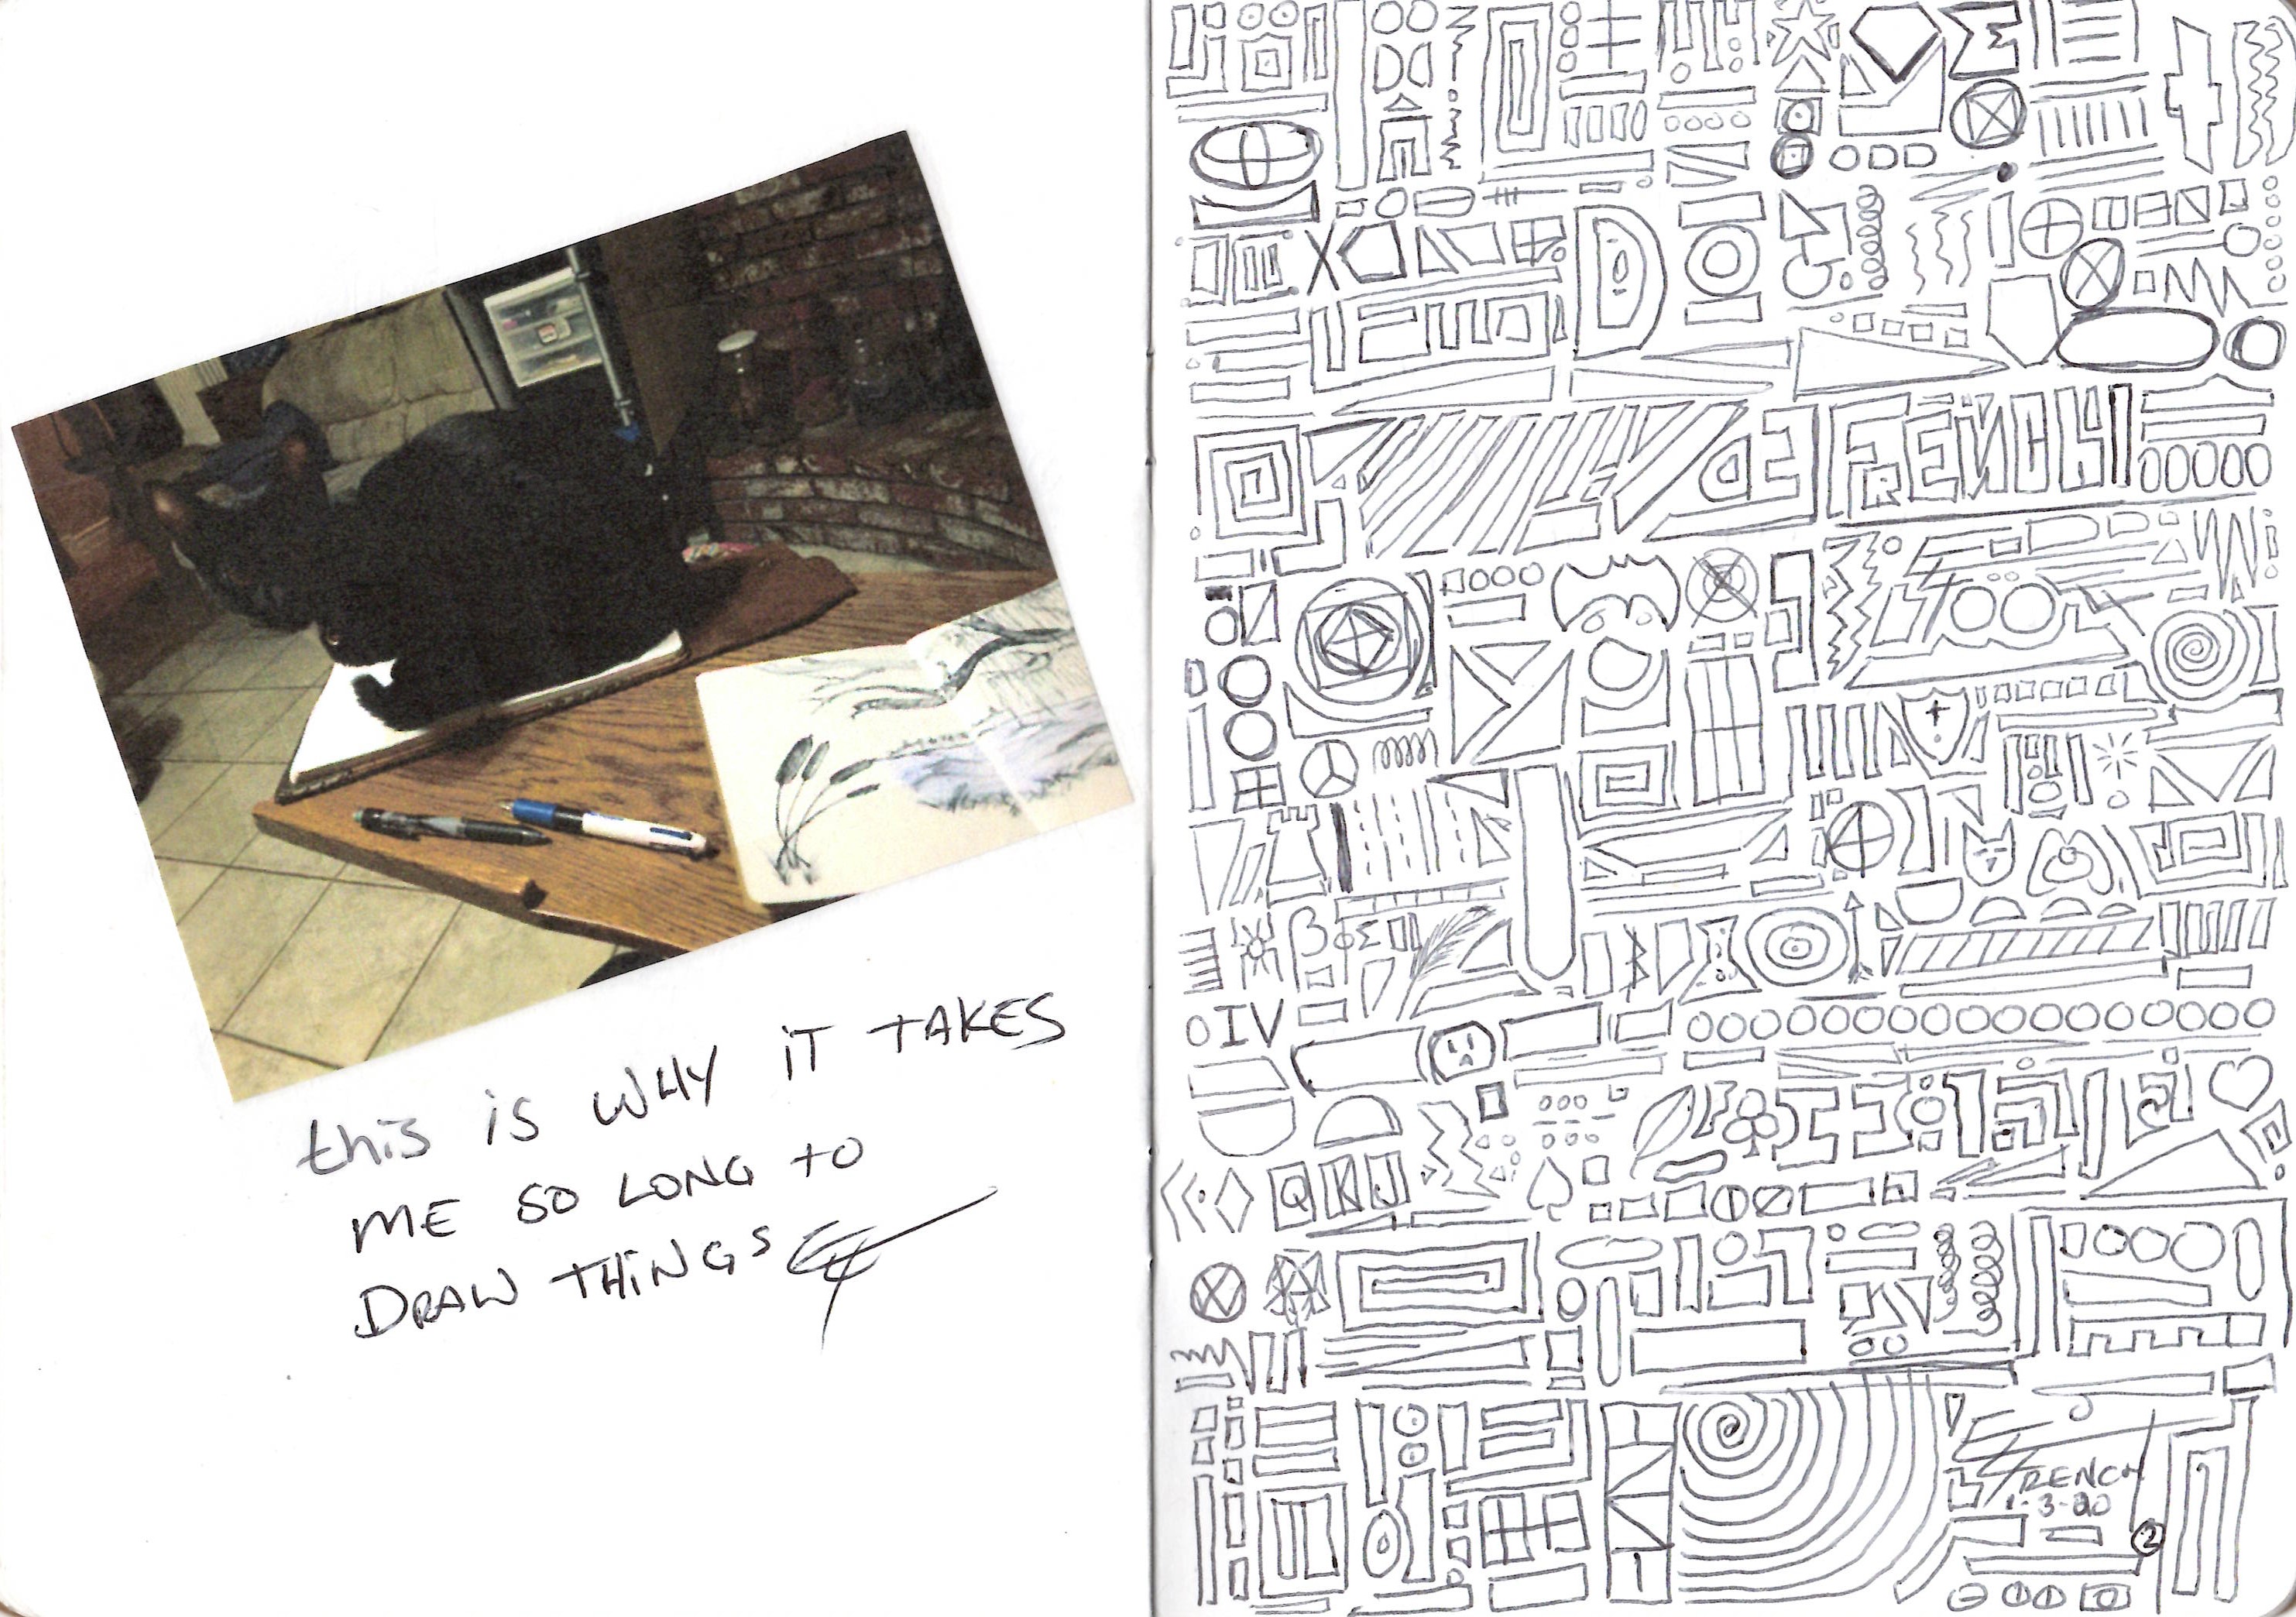 this is WHY iT TAKES
ME SO LONG to
DRAW THiNGS
FRENCH
IV
Q K J
FRENCH
1-3-20
2